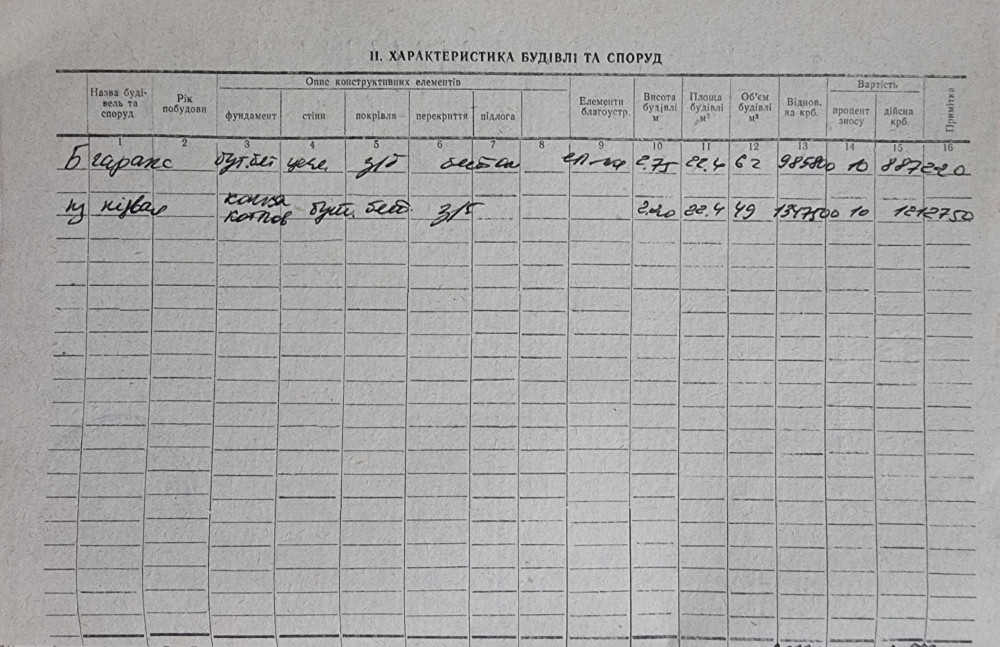 II. ХАРАКТЕРИСТИКА БУДІВЛІ ТА СПОРУД
Назва буді-
вель та
споруд
Рік
побудови
Опис конструктивних елементів
фундамент
стіни
покрівля
перекриття
підлога
Елементи
благоустр.
Висота
будівлі
м
Площа
будівлі
м²
Об'єм
будівлі
м³
Віднов.
на крб.
Вартість
процент
зносу
дійсна
крб.
Примітка
1 2 3 4 5 6 7 8 9 10 11 12 13 14 15 16
Б гараж бут.бет цегл з/б бетон 2.75 22.4 62 985800 10 887220
підвал
котлов бут. бет. з/б 2.20 22.4 49 1347500 10 1212750